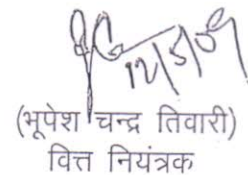 12/5/09
(भूपेश चन्द्र तिवारी)
वित्त नियंत्रक